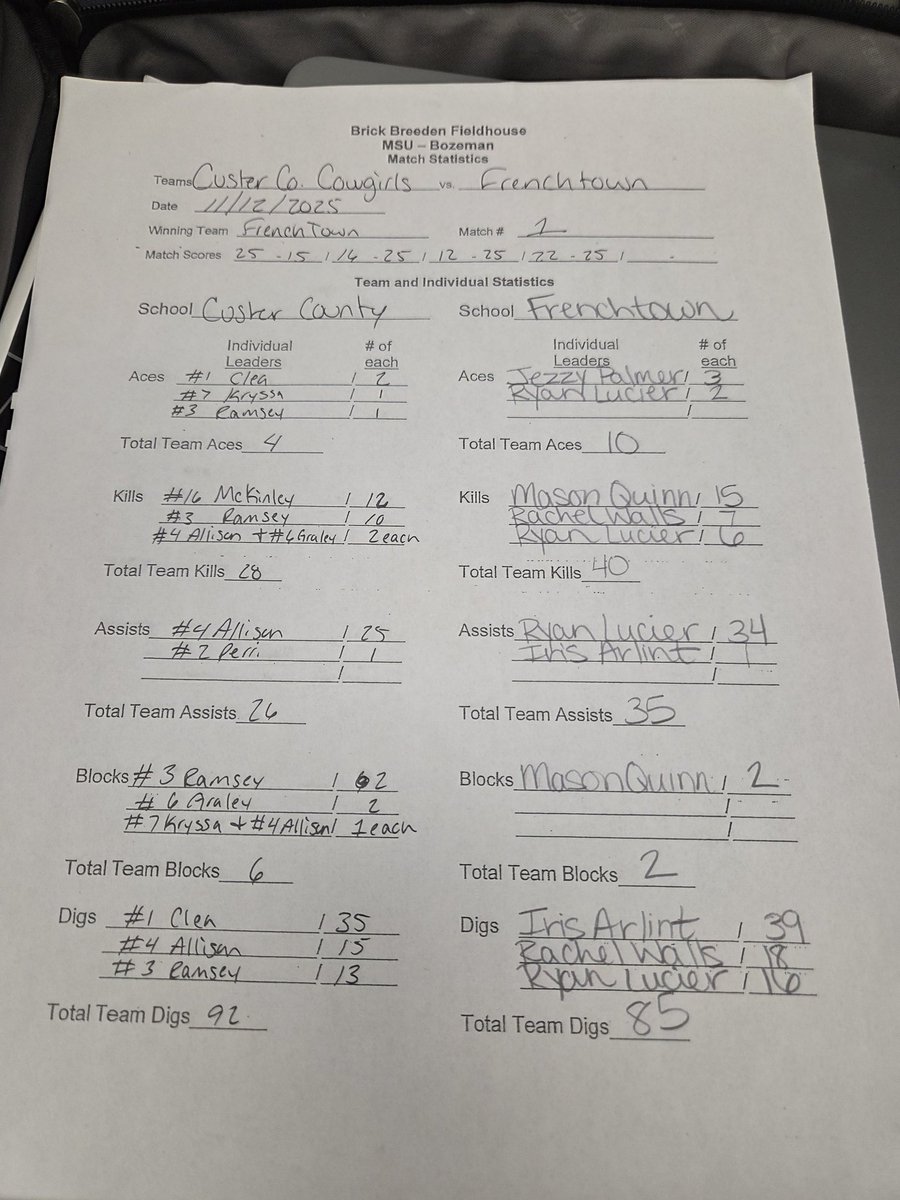 Brick Breeden Fieldhouse
MSU – Bozeman
Match Statistics
Teams Custer Co. Cowgirls vs. Frenchtown
Date 11/12/2025
Winning Team FrenchTown Match # 1
Match Scores 25 - 15 / 14 - 25 / 12 - 25 / 22 - 25 / -
Team and Individual Statistics
School Custer County School Frenchtown
Individual # of Individual # of
Leaders each Leaders each
Aces #1 Clea / 2 Aces Jezzy Palmer / 3
#7 Kryssa / 1 Ryan Lucier / 2
#3 Ramsey / 1 /
Total Team Aces 4 Total Team Aces 10
Kills #16 McKinley / 12 Kills Mason Quinn / 15
#3 Ramsey / 10 Rachel Walls / 7
#4 Allison + #6 Graley / 2 each Ryan Lucier / 6
Total Team Kills 28 Total Team Kills 40
Assists #4 Allison / 25 Assists Ryan Lucier / 34
#2 Perri / 1 Iris Arlint / 1
/ /
Total Team Assists 26 Total Team Assists 35
Blocks #3 Ramsey / 2 Blocks Mason Quinn / 2
#6 Graley / 2 /
#7 Kryssa + #4 Allison / 1 each /
Total Team Blocks 6 Total Team Blocks 2
Digs #1 Clea / 35 Digs Iris Arlint / 39
#4 Allison / 15 Rachel Walls / 18
#3 Ramsey / 13 Ryan Lucier / 16
Total Team Digs 92 Total Team Digs 85